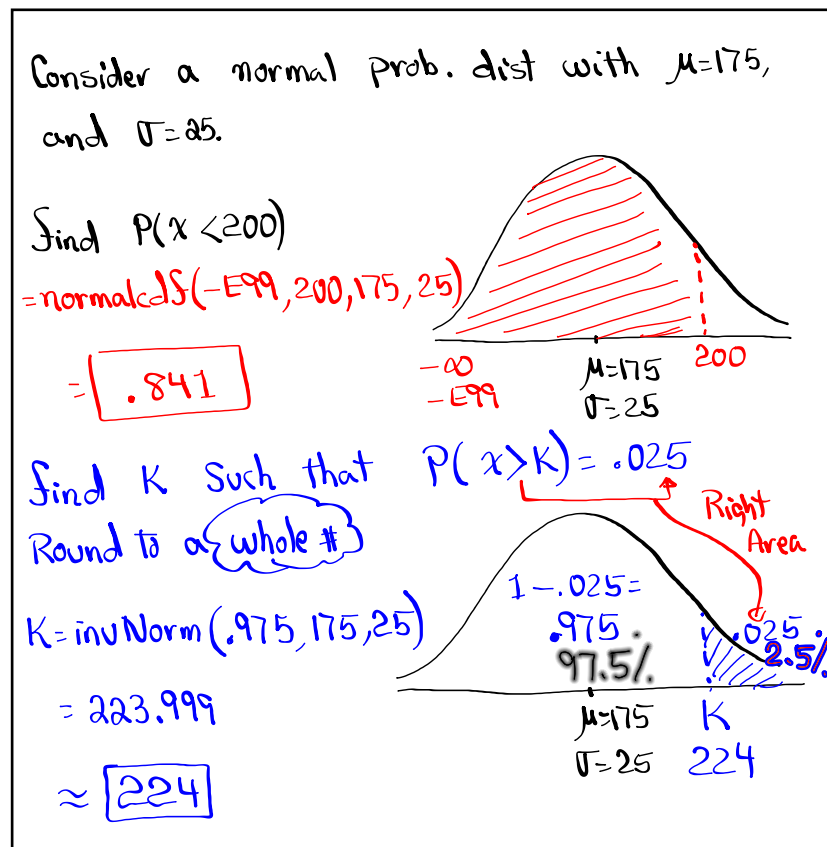 Consider a normal prob. dist with μ=175,
and σ=25.
find P(x<200)
=normalcdf(-E99,200,175,25)
= .841
-∞
-E99
μ=175
σ=25
200
find K such that P(x>K)=.025
Round to a whole #
Right
Area
K=invNorm(.975,175,25)
1-.025=
.975
97.5%
.025
2.5%
= 223.999
μ=175
σ=25
K
224
≈ 224